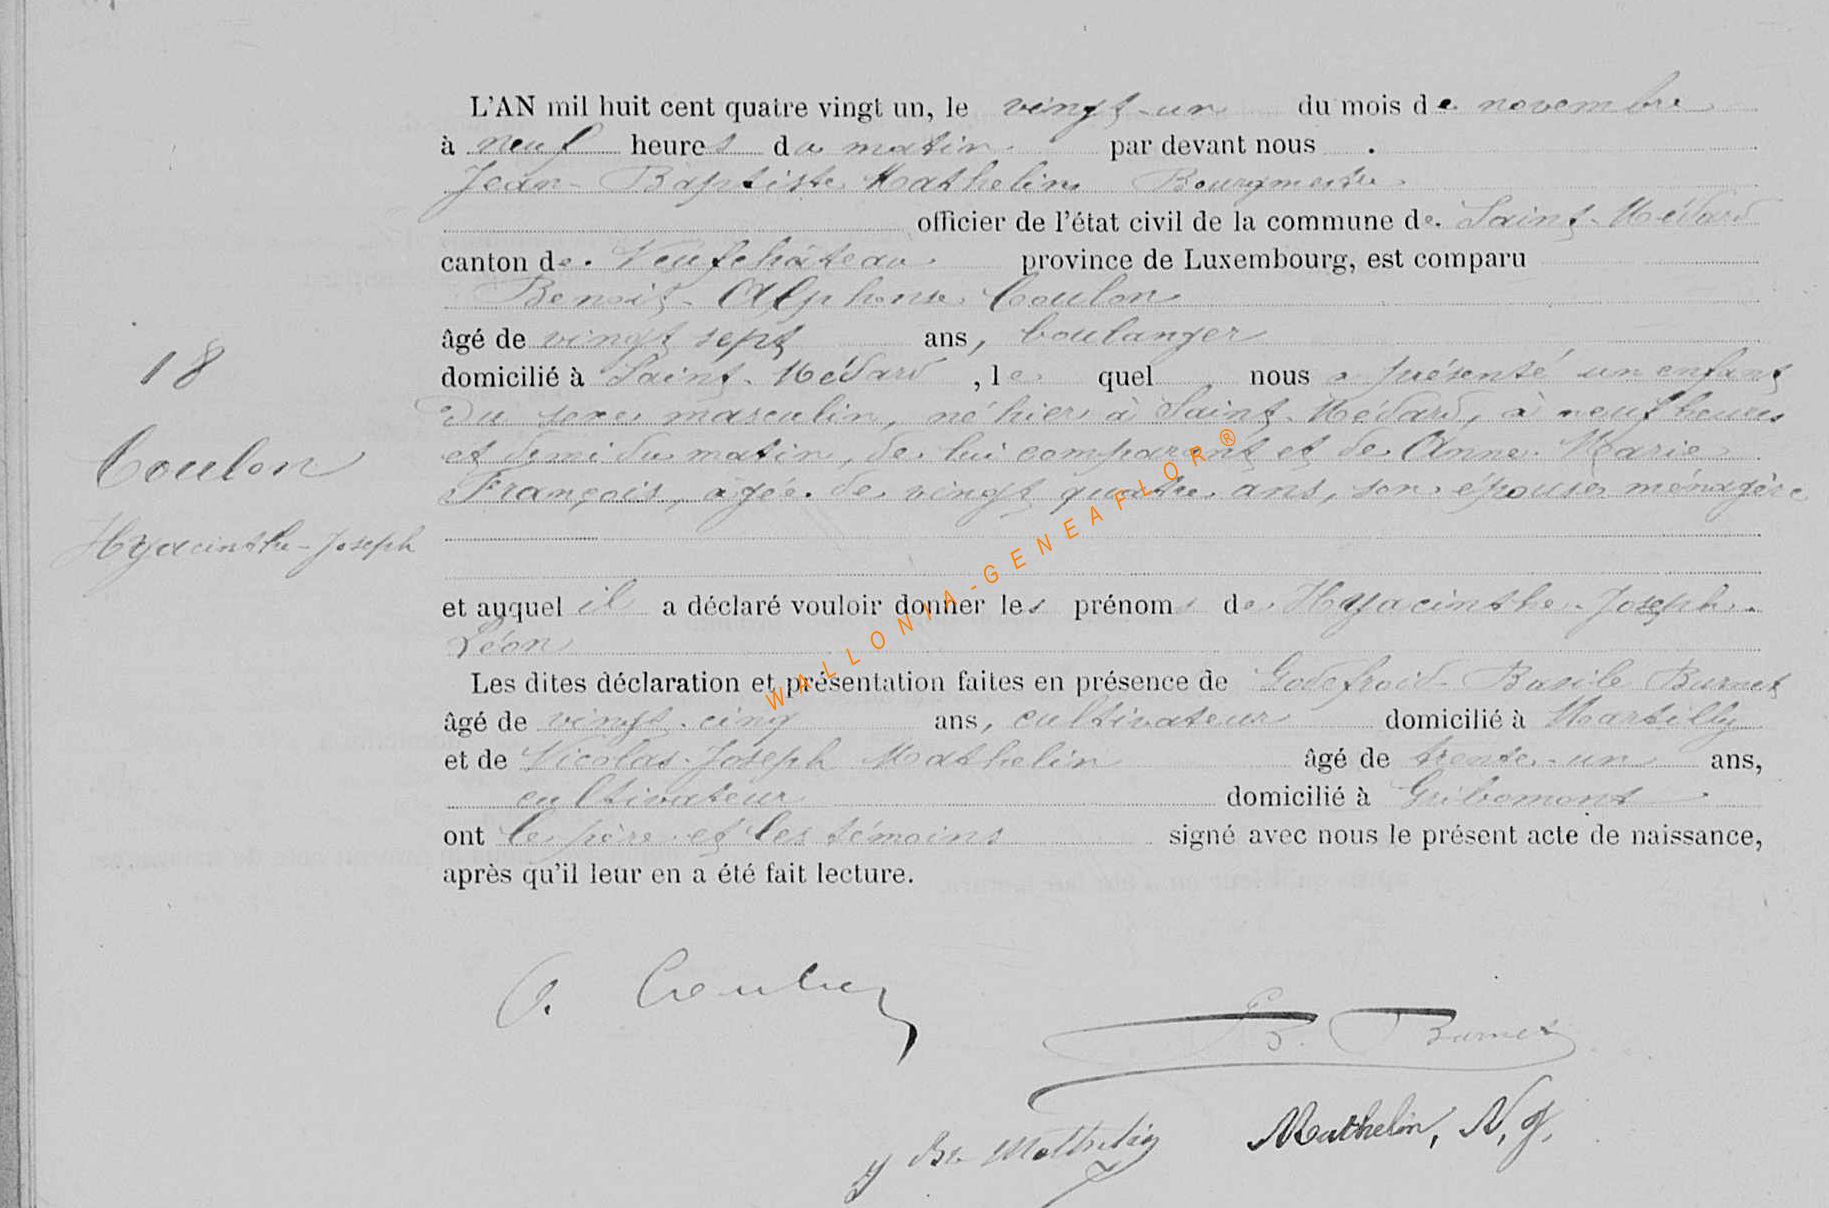 L'AN mil huit cent quatre vingt un, le vingt-un du mois de novembre
à neuf heures du matin par devant nous
Jean-Baptiste Mathelin Bourgmestre
officier de l'état civil de la commune de Saint-Médard
canton de Neufchâteau province de Luxembourg, est comparu
Benoit-Alphonse Coulon
âgé de vingt sept ans, boulanger
domicilié à Saint-Médard, lequel nous a présenté un enfant
18
du sexe masculin, né hier à Saint-Médard, à neuf heures
et demi du matin, de lui comparant et de Anne-Marie
Coulon
François, âgée de vingt quatre ans, son épouse ménagère
Hyacinthe-Joseph
et auquel il a déclaré vouloir donner les prénoms de Hyacinthe-Joseph-
Léon
Les dites déclaration et présentation faites en présence de Godefroid-Basile Burnet
âgé de vingt-cinq ans, cultivateur domicilié à Martilly
et de Nicolas-Joseph Mathelin âgé de trente-un ans,
cultivateur domicilié à Gribomont
ont le père et les témoins signé avec nous le présent acte de naissance,
après qu'il leur en a été fait lecture.
A. Coulon
B. Burnet
J Bte Mathelin
Mathelin, N, J,
WALLONIA-GENEAFLOR ®